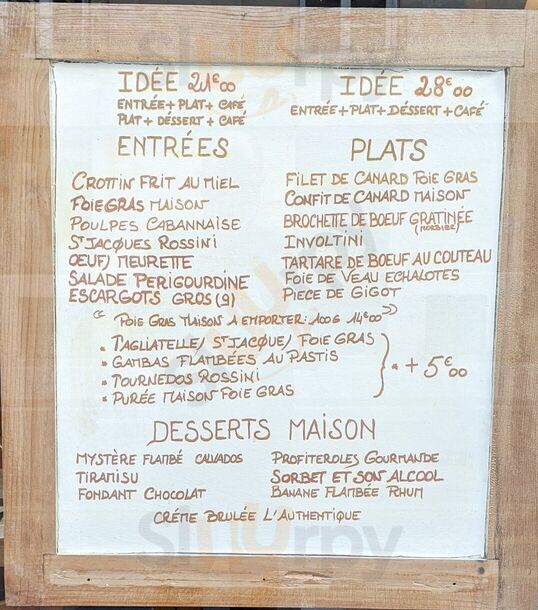 IDÉE 21€00
ENTRÉE + PLAT + CAFÉ
PLAT + DÉSSERT + CAFÉ
IDÉE 28€00
ENTRÉE + PLAT + DÉSSERT + CAFÉ
ENTRÉES
CROTTIN FRIT AU MIEL
FOIE GRAS MAISON
POULPES CABANNAISE
ST JACQUES ROSSINI
OEUF MEURETTE
SALADE PERIGOURDINE
ESCARGOTS GROS (9)
PLATS
FILET DE CANARD FOIE GRAS
CONFIT DE CANARD MAISON
BROCHETTE DE BOEUF GRATINÉE
(MORBIER)
INVOLTINI
TARTARE DE BOEUF AU COUTEAU
FOIE DE VEAU ECHALOTES
PIECE DE GIGOT
" FOIE GRAS MAISON A EMPORTER: 100G 14€00 "
• TAGLIATELLE/ ST JACQUE/ FOIE GRAS
• GAMBAS FLAMBÉES AU PASTIS
• TOURNEDOS ROSSINI
• PURÉE MAISON FOIE GRAS
+ 5€00
DESSERTS MAISON
MYSTÈRE FLAMBÉ CALVADOS
TIRAMISU
FONDANT CHOCOLAT
PROFITEROLES GOURMANDE
SORBET ET SON ALCOOL
BANANE FLAMBÉE RHUM
CRÉME BRULÉE L'AUTHENTIQUE
Sluurpy
Sluurpy